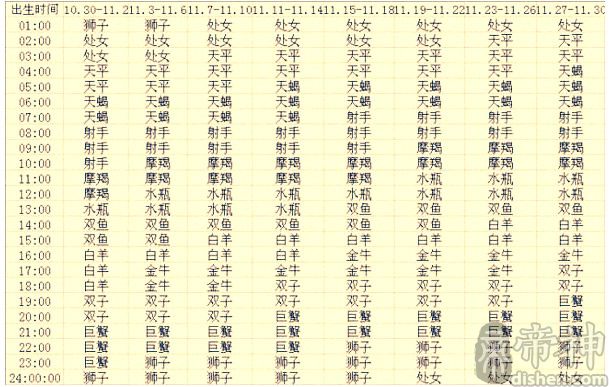 出生时间 10.30-11.2 11.3-11.6 11.7-11.10 11.11-11.14 11.15-11.18 11.19-11.22 11.23-11.26 11.27-11.30
01:00 狮子 狮子 处女 处女 处女 处女 处女 处女
02:00 处女 处女 处女 处女 处女 处女 天平 天平
03:00 处女 处女 天平 天平 天平 天平 天平 天平
04:00 天平 天平 天平 天平 天平 天平 天平 天蝎
05:00 天平 天平 天平 天蝎 天蝎 天蝎 天蝎 天蝎
06:00 天蝎 天蝎 天蝎 天蝎 天蝎 天蝎 天蝎 天蝎
07:00 天蝎 天蝎 天蝎 天蝎 射手 射手 射手 射手
08:00 射手 射手 射手 射手 射手 射手 射手 射手
09:00 射手 射手 射手 射手 射手 摩羯 摩羯 摩羯
10:00 射手 摩羯 摩羯 摩羯 摩羯 摩羯 摩羯 摩羯
11:00 摩羯 摩羯 摩羯 摩羯 摩羯 水瓶 水瓶 水瓶
12:00 摩羯 水瓶 水瓶 水瓶 水瓶 水瓶 水瓶 水瓶
13:00 水瓶 水瓶 水瓶 水瓶 双鱼 双鱼 双鱼 双鱼
14:00 双鱼 双鱼 双鱼 双鱼 双鱼 双鱼 白羊 白羊
15:00 双鱼 双鱼 白羊 白羊 白羊 白羊 白羊 白羊
16:00 白羊 白羊 白羊 白羊 金牛 金牛 金牛 金牛
17:00 白羊 金牛 金牛 金牛 金牛 金牛 金牛 双子
18:00 白羊 金牛 金牛 双子 双子 双子 双子 双子
19:00 双子 双子 双子 双子 双子 双子 双子 巨蟹
20:00 双子 双子 双子 巨蟹 巨蟹 巨蟹 巨蟹 巨蟹
21:00 巨蟹 巨蟹 巨蟹 巨蟹 巨蟹 巨蟹 巨蟹 巨蟹
22:00 巨蟹 巨蟹 巨蟹 巨蟹 狮子 狮子 狮子 狮子
23:00 巨蟹 狮子 狮子 狮子 狮子 狮子 狮子 狮子
24:00:00 狮子 狮子 狮子 狮子 狮子 处女 处女 处女
帝神